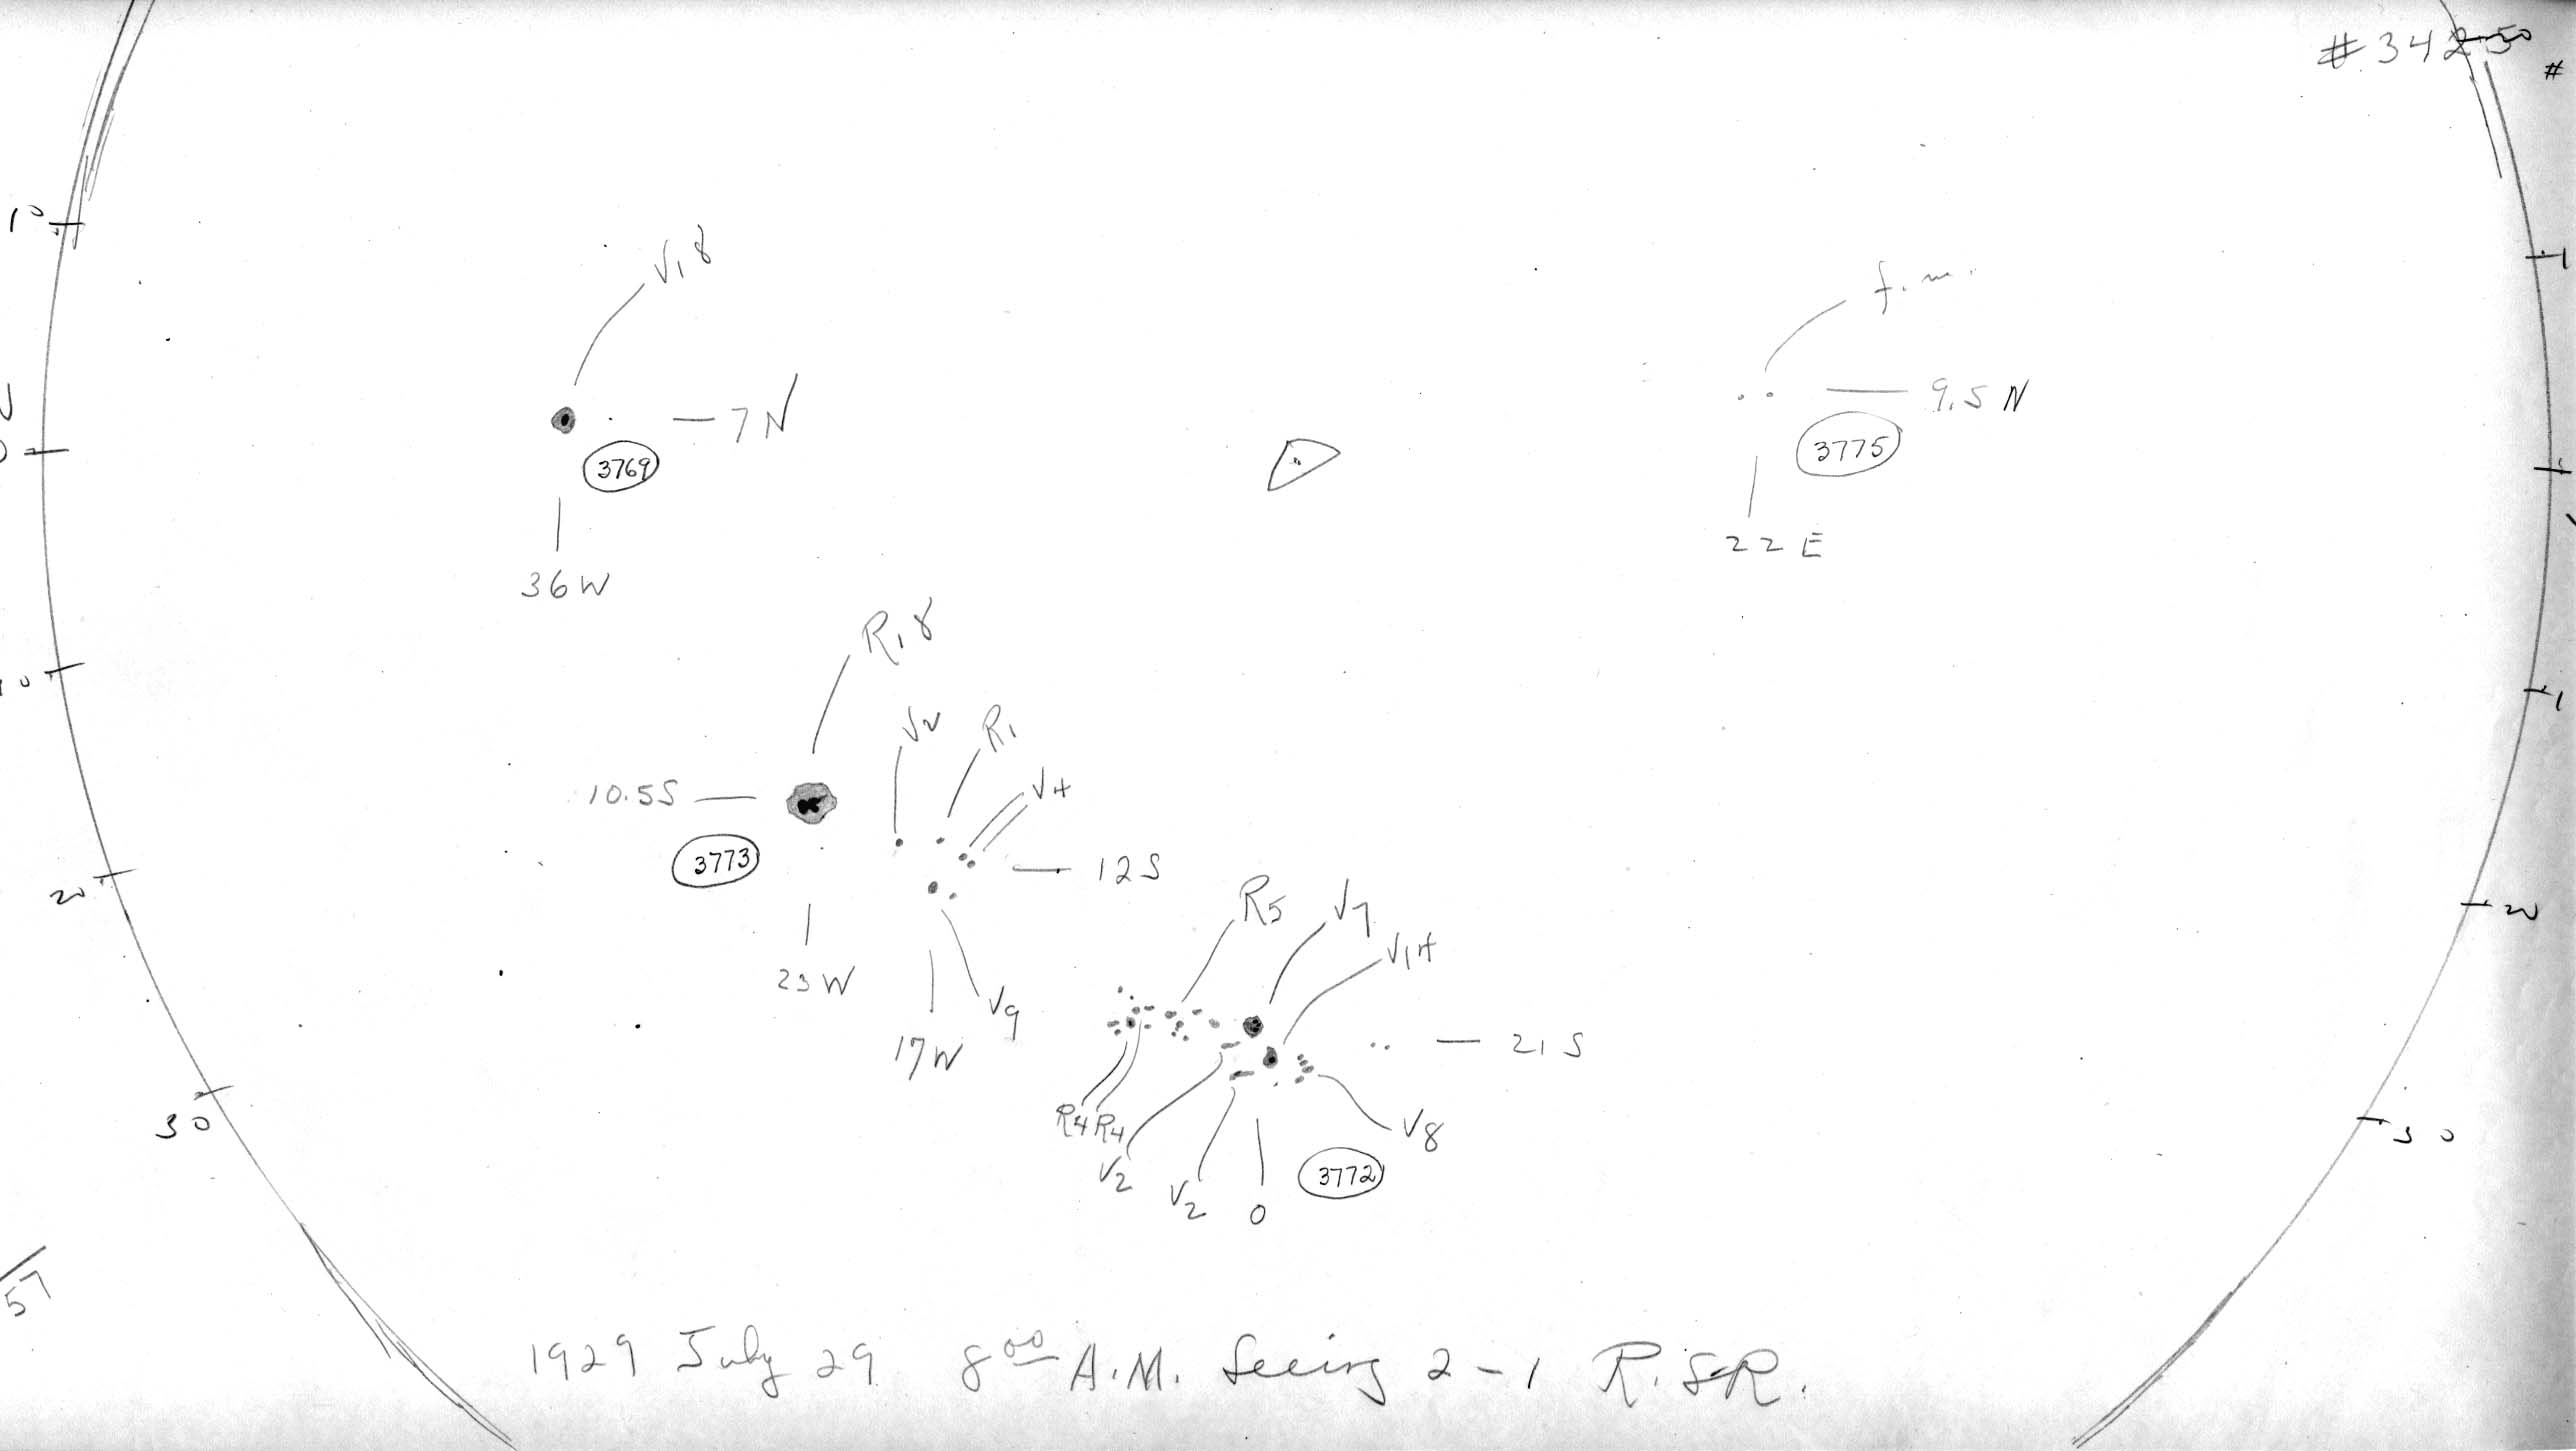 #3425
10
V18
f.m.
7N
9.5 N
3769
3775
36W
22 E
R18
V2
R1
V4
10.5S
3773
12S
20
20
R5
V7
V14
23W
V9
17W
21 S
30
30
R4 R4
V8
V2
V2
0
3772
57
1929 July 29 8 00 A.M. Seeing 2-1 R.S.R.